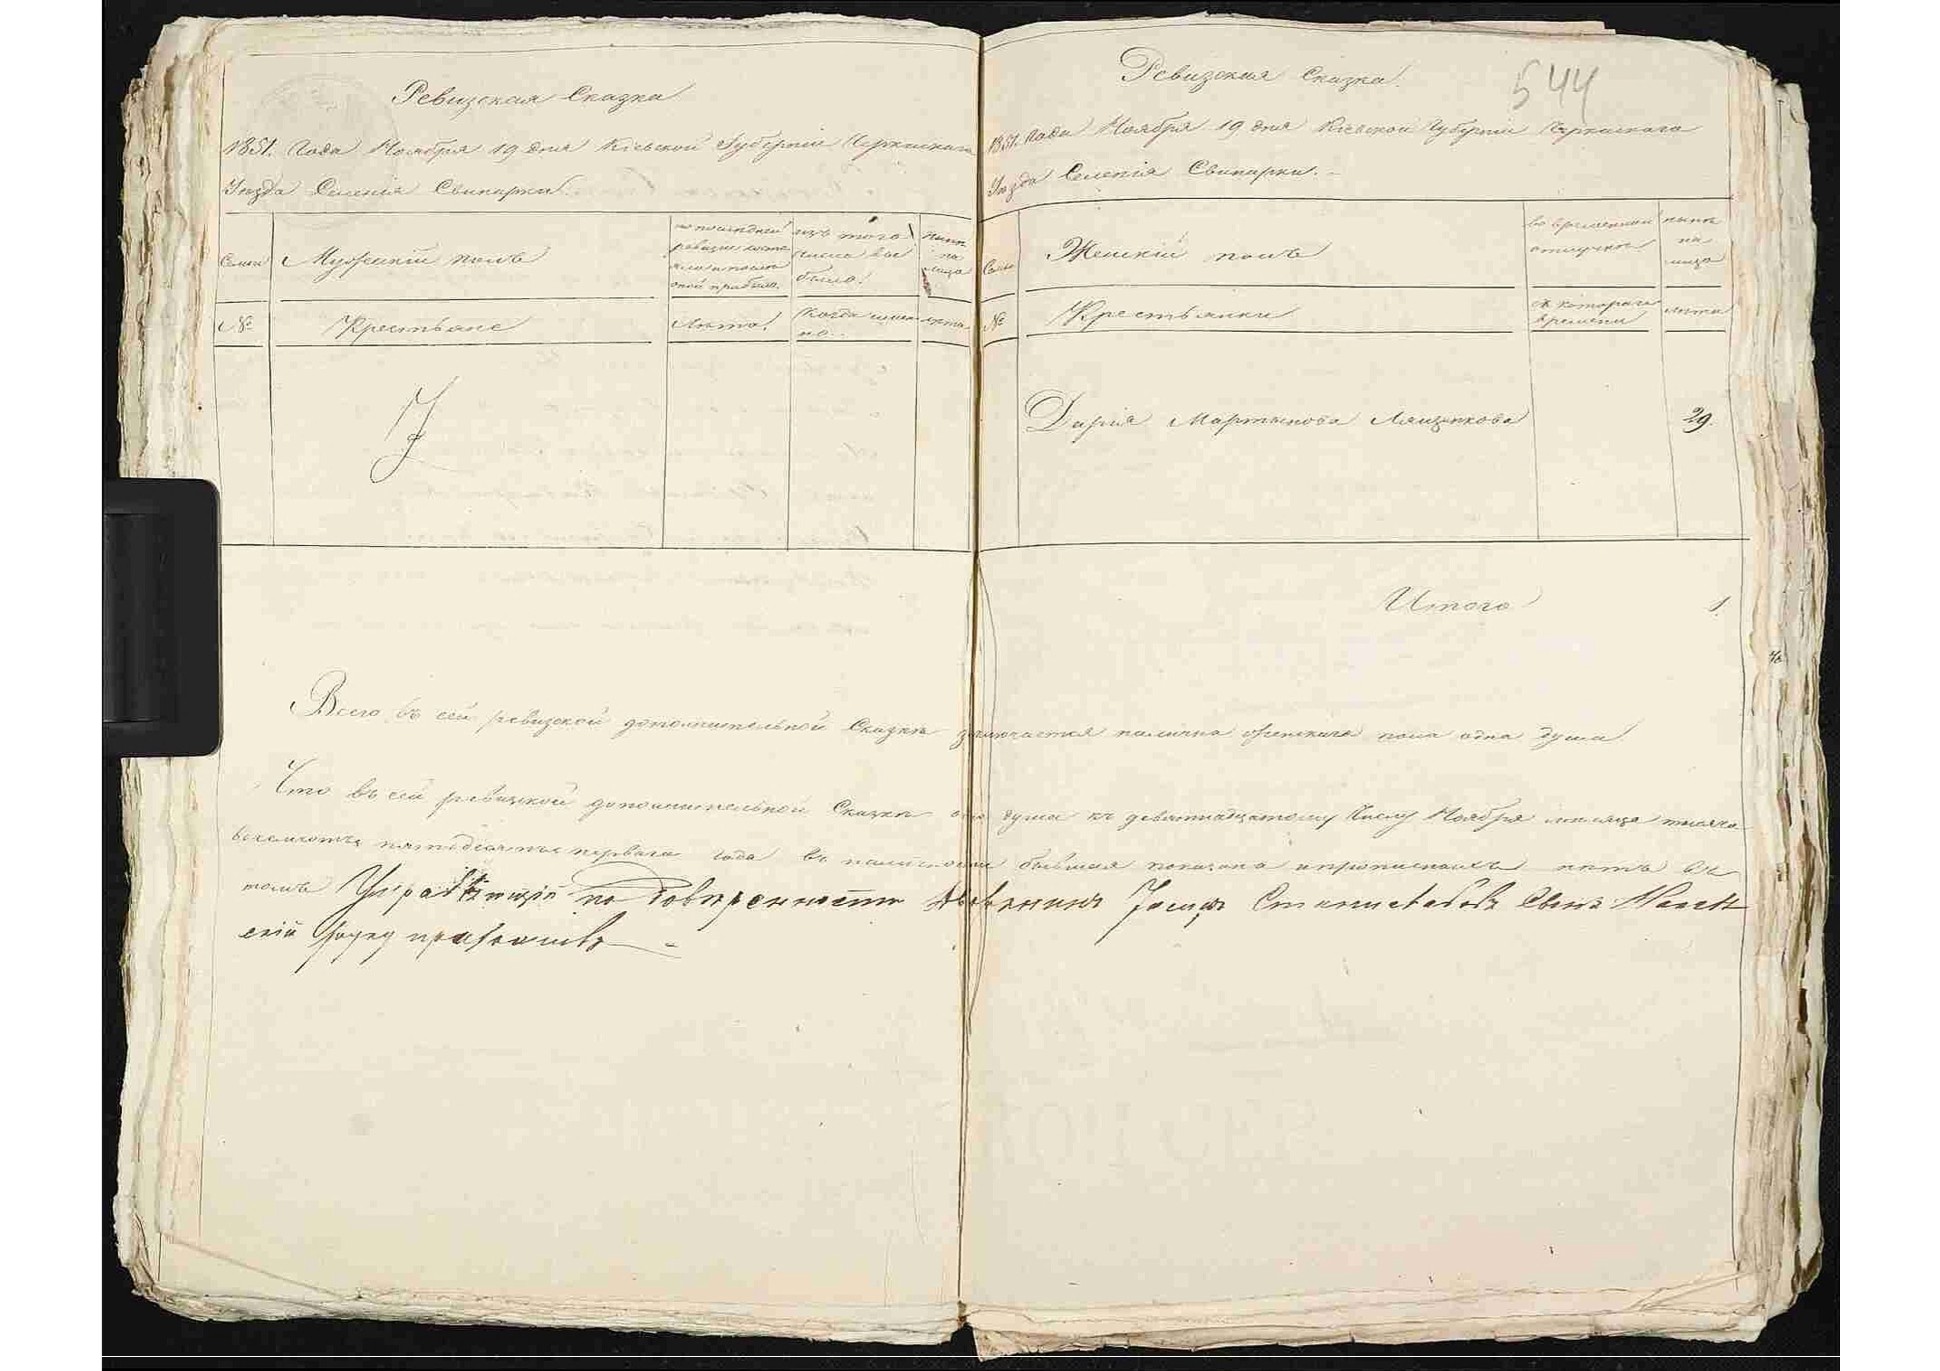 Ревизская Сказка
1851. Года Ноября 19 дня Кіевской Губерніи Черкаскаго
Уѣзда Селенія Свинарки.
Семьи
Мужескій полъ
по послѣдней
ревизіи состо
яло и послѣ
оной прибыло.
изъ того
числа вы
было.
нынѣ
на
лицо
№
Крестьяне
Лѣта.
Когда имен
но.
лѣта
Ревизская Сказка.
544
1851. Года Ноября 19 дня Кіевской Губерніи Черкаскаго
Уѣзда Селенія Свинарки.
Семьи
Женскій полъ
во временной
отлучкѣ.
нынѣ
на
лицо
№
Крестьянки
съ котораго
времени
лѣта
Дарія Мартынова Лященкова 29.
Итого 1.
Всего въ сей ревизской дополнительной Сказкѣ заключается налично женскаго пола одна душа.
Что въ сей ревизской дополнительной Сказкѣ душа къ девятнадцатому Числу Ноября мѣсяца тысяча
восемсотъ пятьдесятъ перваго года въ наличности бывшая показана и прописныхъ нѣтъ въ
томъ Управляющій по Довѣренности Дворянинъ Іосифъ Станиславовъ Сынъ
скій руку приложилъ